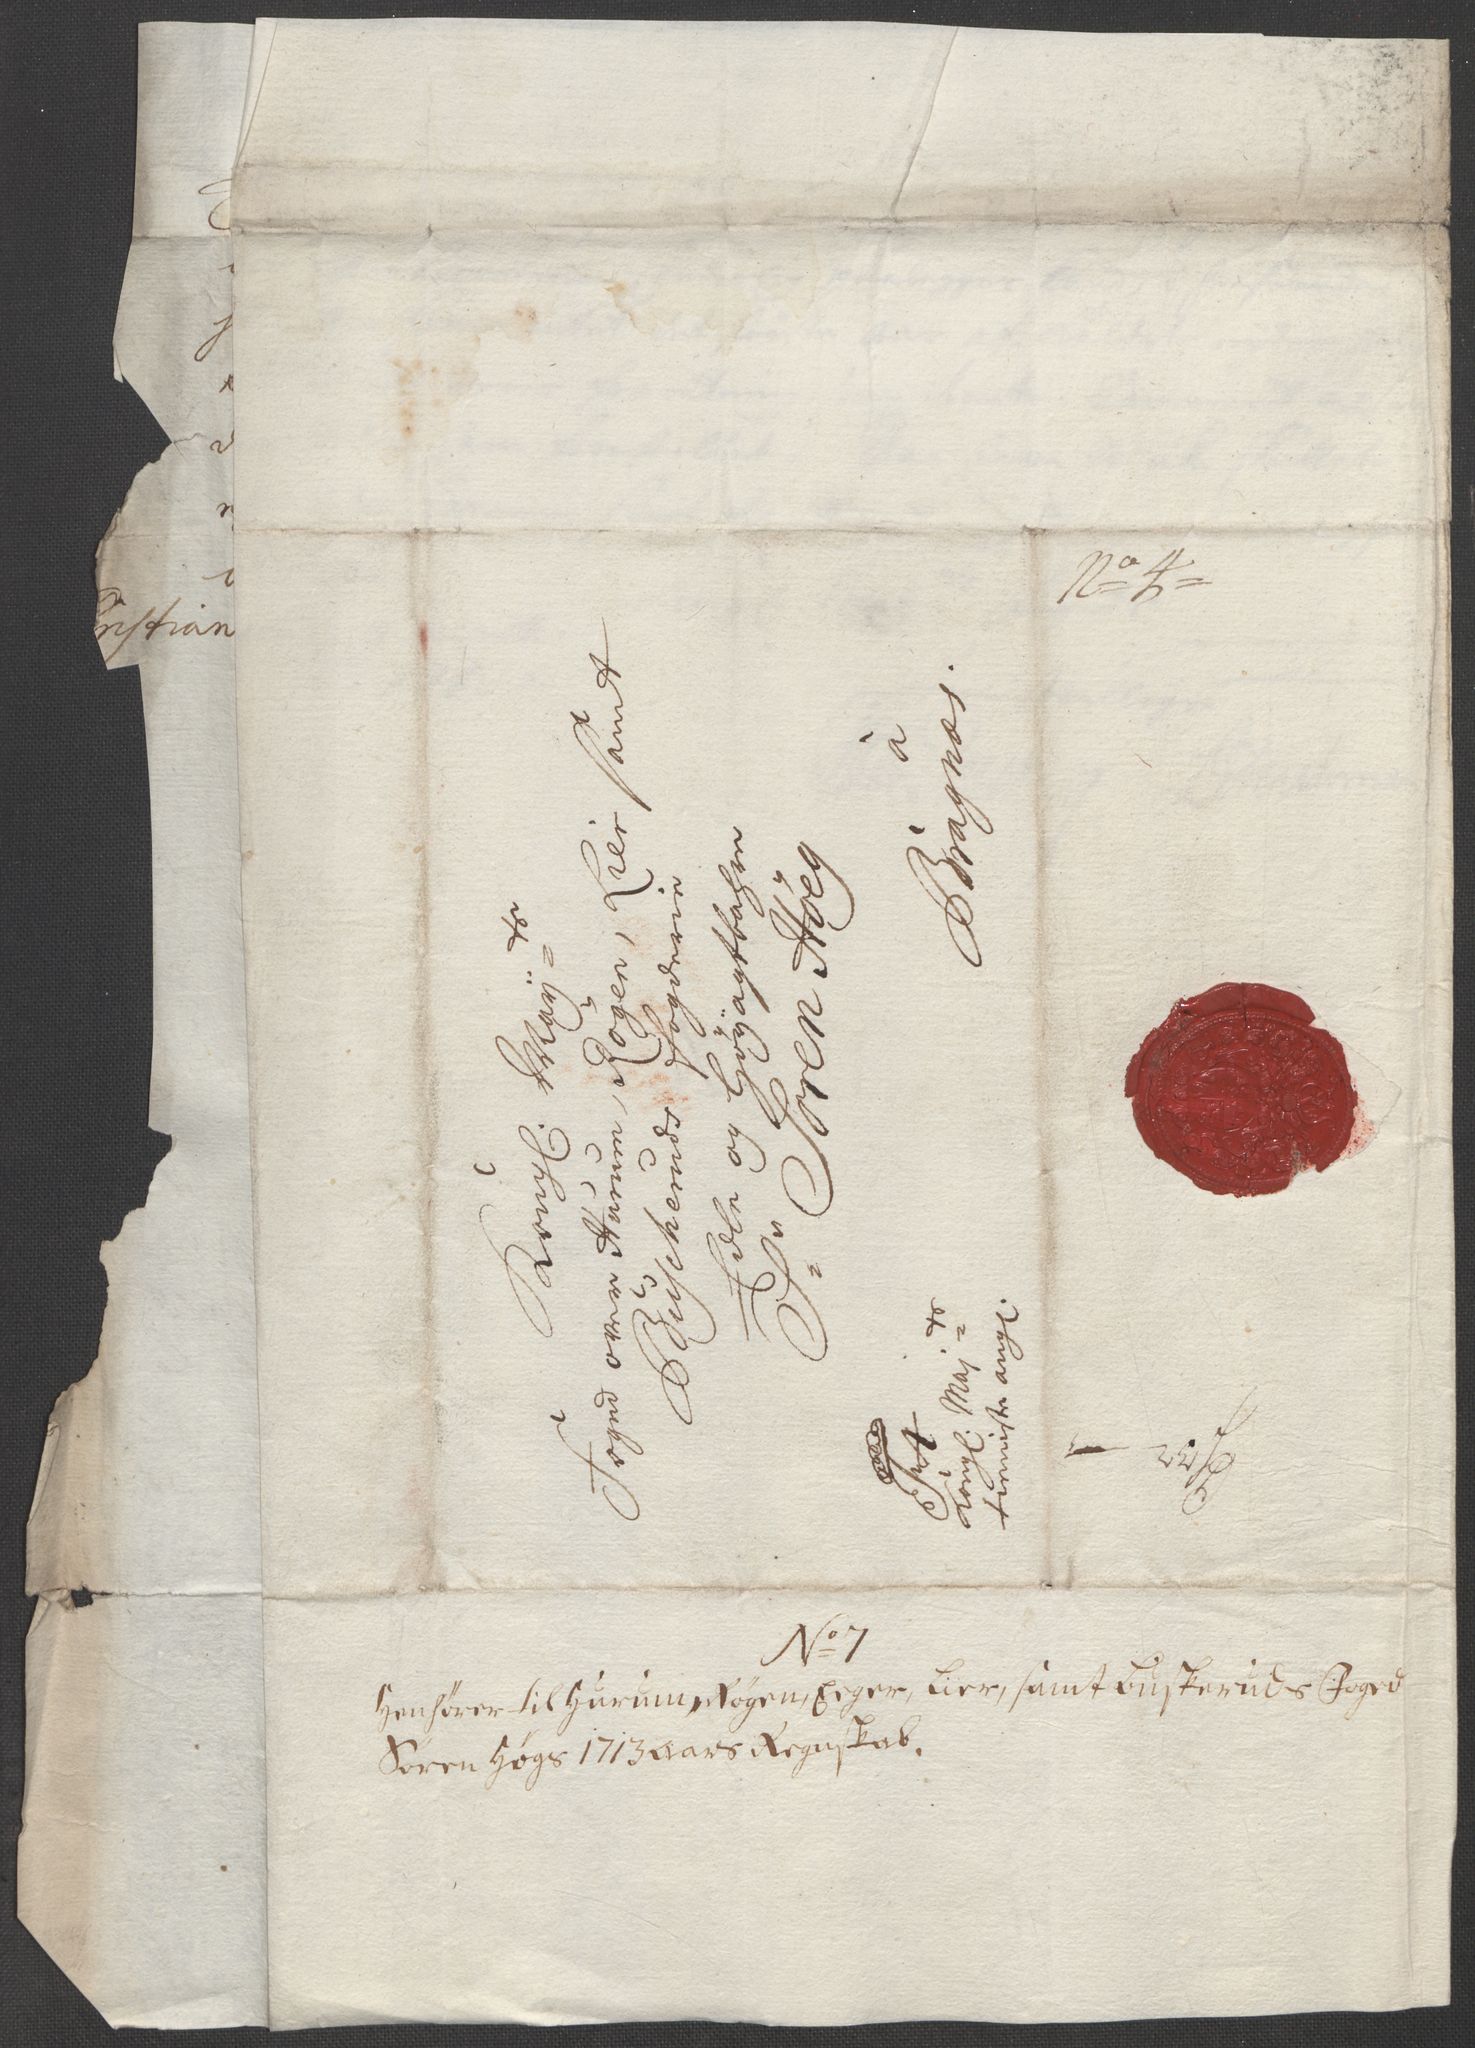 No 4
Kongl. May:ts
Foged over Hurum, Røgen, Lier samt
Buskeruds fogderie
Edle og Høyagtbahre
Sr Søren Høeg
à
Bragnæs.
Kongl. May:ts
tieniste angl:
No 7
Henhører til Hurum, Røgen, Eger, Lier, samt Buskeruds Foged
Søren Høgs 1713 aars Regnskab.
ristian